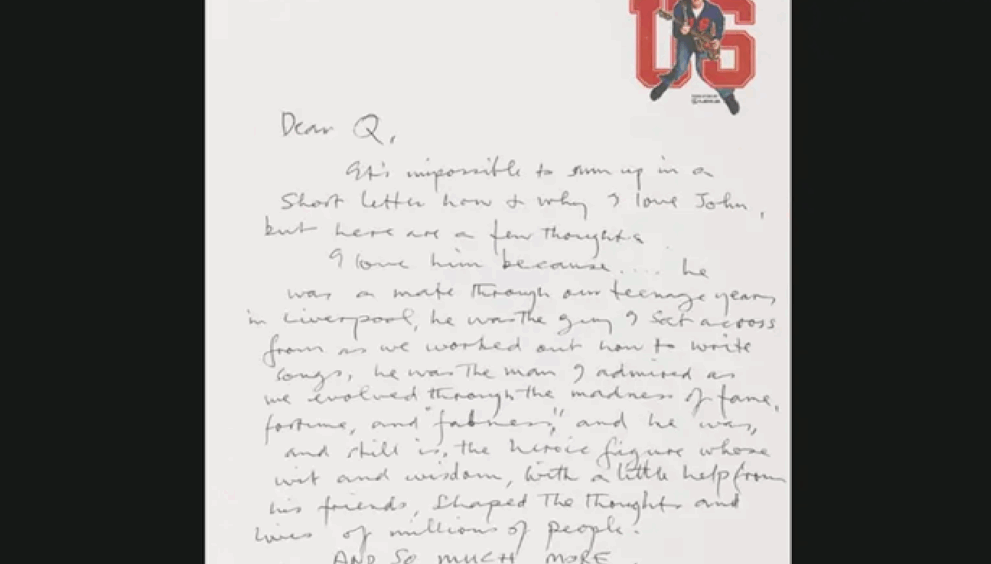 US
Dear Q,
It's impossible to sum up in a
short letter how & why I love John,
but here are a few thoughts
I love him because.... he
was a mate through our teenage years
in Liverpool, he was the guy I sat across
from as we worked out how to write
songs, he was the man I admired as
we evolved through the madness of fame,
fortune, and "fabness," and he was,
and still is, the heroic figure whose
wit and wisdom, with a little help from
his friends, shaped the thoughts and
lives of millions of people.
AND SO MUCH MORE.